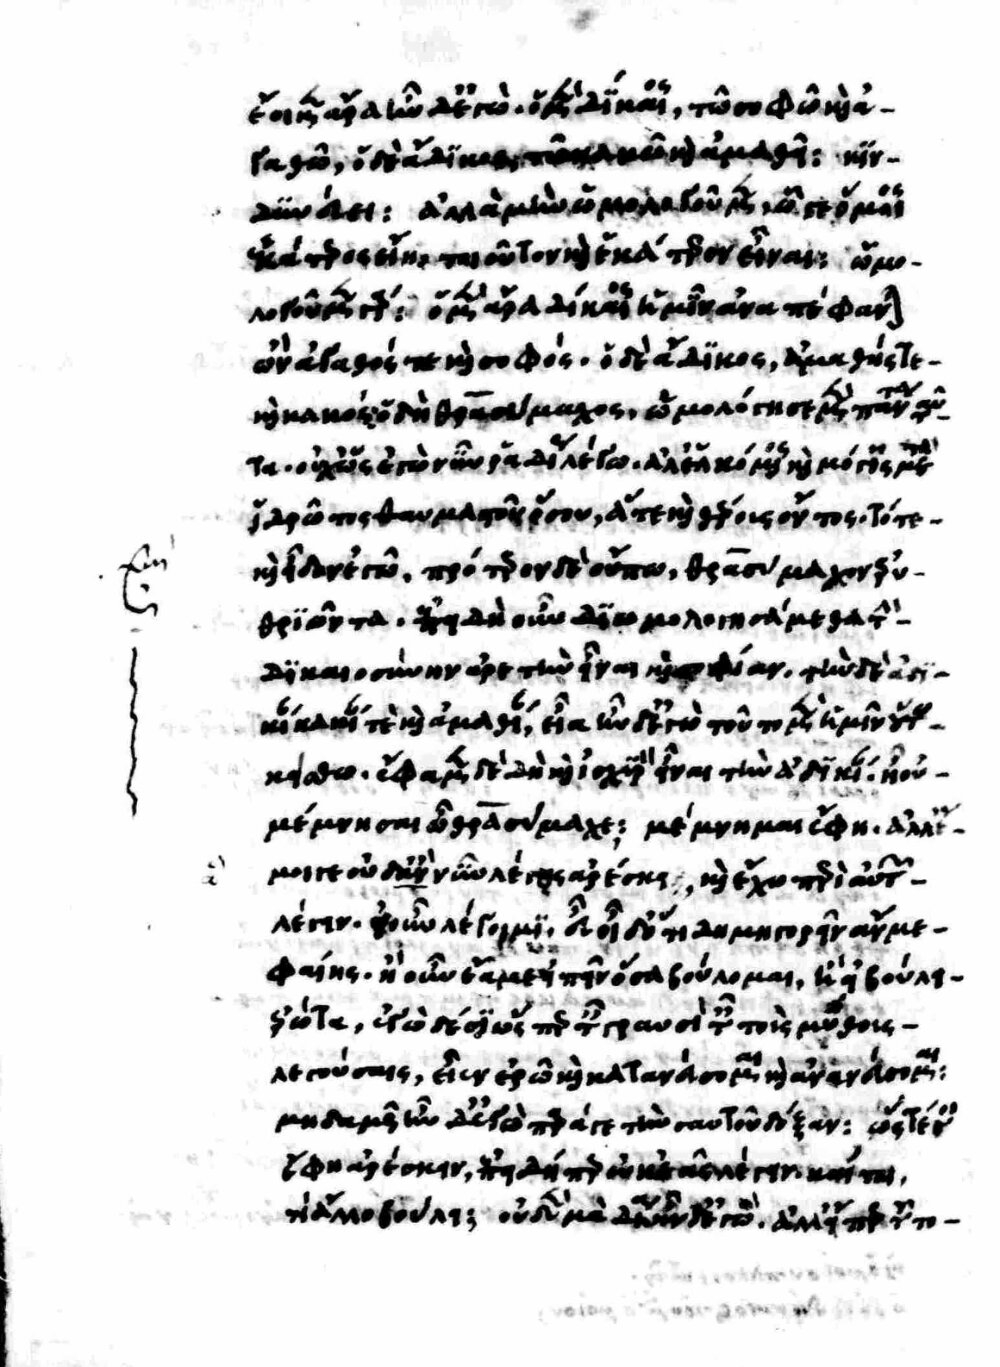 ἔοικεν ἄρα ἦν δ' ἐγὼ· ὁ μὲν δίκαιος, τῶ σοφῶ καὶ ἀ-
γαθῶ, ὁ δὲ ἄδικος, τῶ κακῶ καὶ ἀμαθῆ: κιν-
δυνεύει: ἀλλὰ μὴν ὡμολογοῦμεν, ᾧ γε ὅμοιος
ἑκάτερος εἴη, τοιοῦτον καὶ ἑκάτερον εἶναι: ὡμο-
λογοῦμεν γάρ: ὁ μὲν ἄρα δίκαιος ἡμῖν ἀναπέφαν
ὢν ἀγαθός τε καὶ σοφός· ὁ δὲ ἄδικος, ἀμαθής τε
καὶ κακός· ὁ δὴ θρασύμαχος, ὡμολόγησε μὲν πάντα ταῦ-
τα· οὐχ ὡς ἐγὼ νῦν ῥαδίως λέγω· ἀλλ' ἑλκόμενος καὶ μόγις μετὰ
ἱδρῶτος θαυμαστοῦ ὅσου, ἅτε καὶ θέρους ὄντος· τότε
καὶ εἶδον ἐγὼ, πρότερον δὲ οὔπω, θρασύμαχον ἐρυ-
θριῶντα· ἐπειδὴ οὖν διωμολογησάμεθα τὴν
δικαιοσύνην ἀρετὴν εἶναι καὶ σοφίαν, τὴν δὲ ἀδι-
κίαν κακίαν τε καὶ ἀμαθίαν, εἶα ἦν δ' ἐγὼ τοῦτο μὲν ἡμῖν οὕτω
κείσθω· ἔφαμεν δὲ δὴ καὶ ἰσχυρὸν εἶναι τὴν ἀδικίαν· ἢ οὐ
μέμνησαι ὦ θρασύμαχε; μέμνημαι ἔφη· ἀλλ' ἔ-
μοιγε οὐδὲ ἃ νῦν λέγεις ἀρέσκει, καὶ ἔχω περὶ αὐτῶν
λέγειν· εἰ οὖν λέγοιμι, εὖ οἶδ' ὅτι δημηγορεῖν ἄν με
φαίης· ἢ οὖν ἔα με εἰπεῖν ὅσα βούλομαι, ἢ εἰ βούλει
ἐρώτα, ἐγὼ δέ σοι ὥσπερ ταῖς γραυσὶ ταῖς τοὺς μύθους
λεγούσαις, εἶεν ἐρῶ καὶ κατανεύσομαι καὶ ἀνανεύσομαι:
μηδαμῶς ἦν δ' ἐγὼ παρά γε τὴν σαυτοῦ δόξαν: ὥστέ σοι
ἔφη ἀρέσκειν, ἐπειδήπερ οὐκ ἐᾷς λέγειν. καίτοι,
τί ἄλλο βούλει; οὐδὲν μὰ δία ἦν δ' ἐγὼ. ἀλλ' εἴπερ τοῦτο